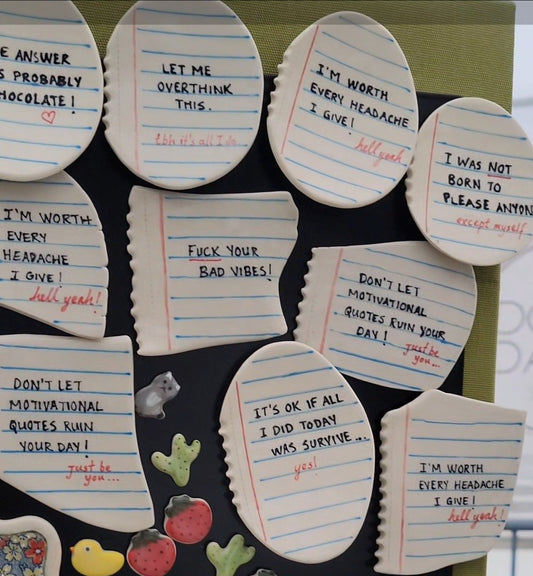 E ANSWER
S PROBABLY
HOCOLATE!
LET ME
OVERTHINK
THIS.
tbh it's all I do
I'M WORTH
EVERY HEADACHE
I GIVE!
hell yeah
I WAS NOT
BORN TO
PLEASE ANYON
except myself
I'M WORTH
EVERY
HEADACHE
I GIVE!
hell yeah!
FUCK YOUR
BAD VIBES!
DON'T LET
MOTIVATIONAL
QUOTES RUIN YOUR
DAY!
just be
you...
DON'T LET
MOTIVATIONAL
QUOTES RUIN
YOUR DAY!
just be
you...
IT'S OK IF ALL
I DID TODAY
WAS SURVIVE...
yes!
I'M WORTH
EVERY HEADACHE
I GIVE!
hell yeah!